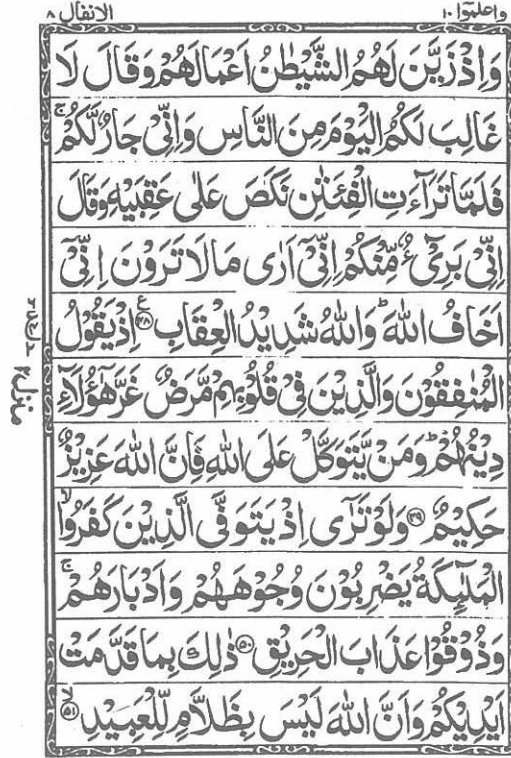 واعلموا ١٠
الانفال ٨
وَاِذْ زَيَّنَ لَهُمُ الشَّيْطٰنُ اَعْمَالَهُمْ وَقَالَ لَا
غَالِبَ لَكُمُ الْيَوْمَ مِنَ النَّاسِ وَاِنِّيْ جَارٌ لَّكُمْ ۚ
فَلَمَّا تَرَآءَتِ الْفِئَتٰنِ نَكَصَ عَلٰى عَقِبَيْهِ وَقَالَ
اِنِّيْ بَرِيْٓءٌ مِّنْكُمْ اِنِّيْٓ اَرٰى مَا لَا تَرَوْنَ اِنِّيْٓ
اَخَافُ اللّٰهَ ؕ وَاللّٰهُ شَدِيْدُ الْعِقَابِ ۴۸ ع اِذْ يَقُوْلُ
الْمُنٰفِقُوْنَ وَالَّذِيْنَ فِيْ قُلُوْبِهِمْ مَّرَضٌ غَرَّ هٰٓؤُلَآءِ
دِيْنُهُمْ ؕ وَمَنْ يَّتَوَكَّلْ عَلَى اللّٰهِ فَاِنَّ اللّٰهَ عَزِيْزٌ
حَكِيْمٌ ۴۹ وَلَوْ تَرٰٓى اِذْ يَتَوَفَّى الَّذِيْنَ كَفَرُوا ۙ
الْمَلٰٓئِكَةُ يَضْرِبُوْنَ وُجُوْهَهُمْ وَاَدْبَارَهُمْ ۚ
وَذُوْقُوْا عَذَابَ الْحَرِيْقِ ۵۰ ذٰلِكَ بِمَا قَدَّمَتْ
اَيْدِيْكُمْ وَاَنَّ اللّٰهَ لَيْسَ بِظَلَّامٍ لِّلْعَبِيْدِ ۵۱ ۙ
منزل ۲